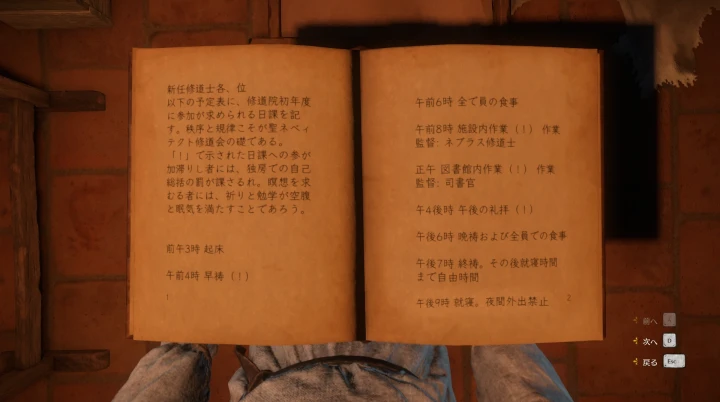 新任修道士各、位
以下の予定表に、修道院初年度
に参加が求められる日課を記
す。秩序と規律こそが聖ネベィ
テクト修道会の礎である。
「！」で示された日課への参が
加滞りし者には、独房での自己
総括の罰が課される。瞑想を求
む者には、祈りと勉学が空腹
と眠気を満たすことであろう。
前午3時 起床
午前4時 早祷（！）
1
午前6時 全で員の食事
午前8時 施設内作業（！）作業
監督: ネブラス修道士
正午 図書館内作業（！）作業
監督: 司書官
午4後時 午後の礼拝（！）
午後6時 晩祷および全員での食事
午後7時 終祷。その後就寝時間
まで自由時間
午後9時 就寝。夜間外出禁止
2
前へ
次へ D
戻る Esc